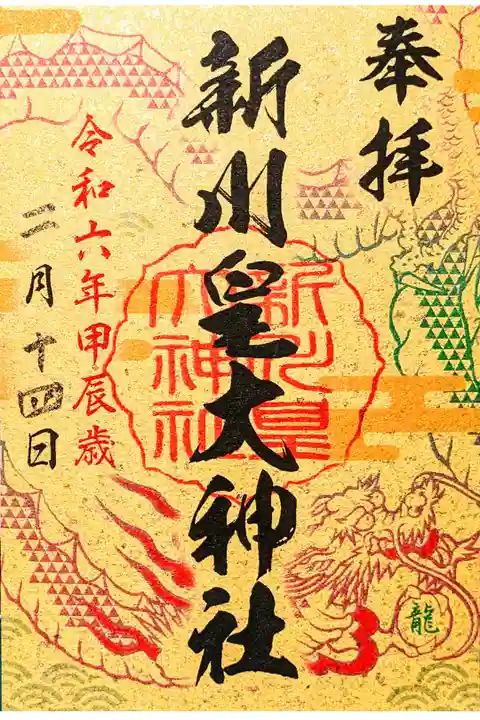 奉拝
新川皇大神社
新川皇大神社
令和六年甲辰歳
二月十四日
龍